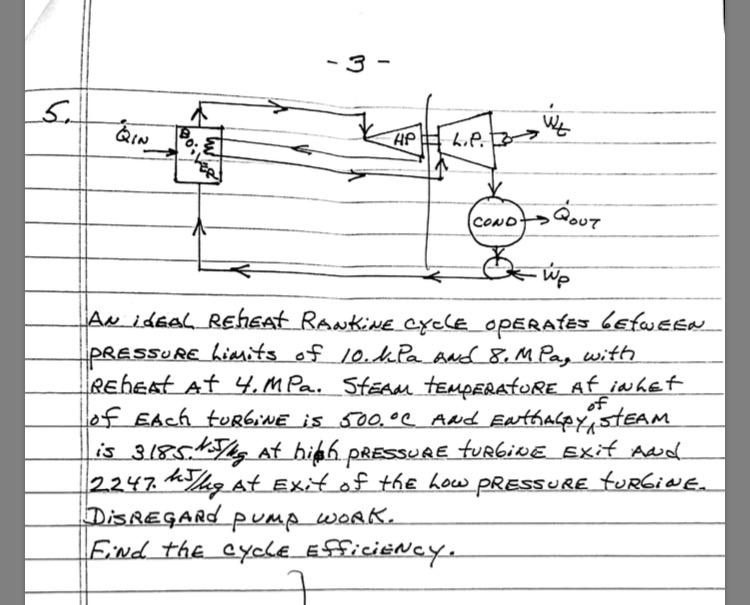 - 3 -
5.
Q̇IN
BOILER
HP
L.P.
Ẇt
COND
Q̇OUT
Ẇp
AN idEAL REhEAT RANKiNE cycLE OPERATES bETWEEN
PRESSURE LiMitS of 10. kPa ANd 8. MPa, with
REhEAT AT 4. MPa. STEAM tEMPERATURE At iNLEt
of EAch tURbiNE is 500. °C ANd ENthALPY of STEAM
is 3185. kJ/kg At high PRESSURE tURbiNE Exit ANd
2247. kJ/kg At Exit of thE Low PRESSURE tURbiNE.
DiSREGARd PUMP WORK.
FiNd thE cycLE EfficiENcy.